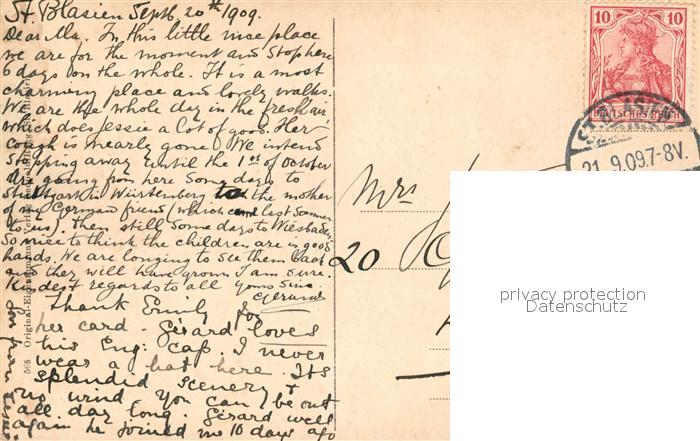 St. Blasien Septh. 20th 1909.
Dear Ma. In this little nice place
we are for the moment and stop here
6 days on the whole. It is a most
charming place and lovely walks.
We are the whole day in the fresh air,
which does Jessie a lot of good. Her
cough is nearly gone. We intend
stopping away until the 1st of October
are going from here some days to
Stuttgart in Würtemberg to the mother
of my German friend (which last summer
to us), then still some days to Wiesbaden
So nice to think the children are in good
hands. We are longing to see them back
and they will have grown I am sure.
Kindest regards to all yours sinc.
Gerard
Thank Emily for
her card. Gérard loves
his Eng: cap. I never
wear a hat here. Its
splendid scenery +
no wind you can be out
all day long. Gérard well
again he joined me 10 days ago
565 Original-Eigentum
Mrs
20
10 10
DEUTSCHES REICH
ST. BLASIEN
21.9.09.7-8V.
privacy protection
Datenschutz